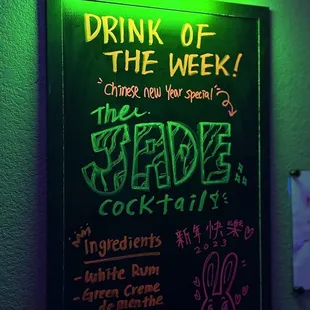 DRINK OF
THE WEEK!
"Chinese new Year special"
The
JADE
cocktail
Ingredients
- White Rum
- Green Creme
de menthe
新年快樂
2023